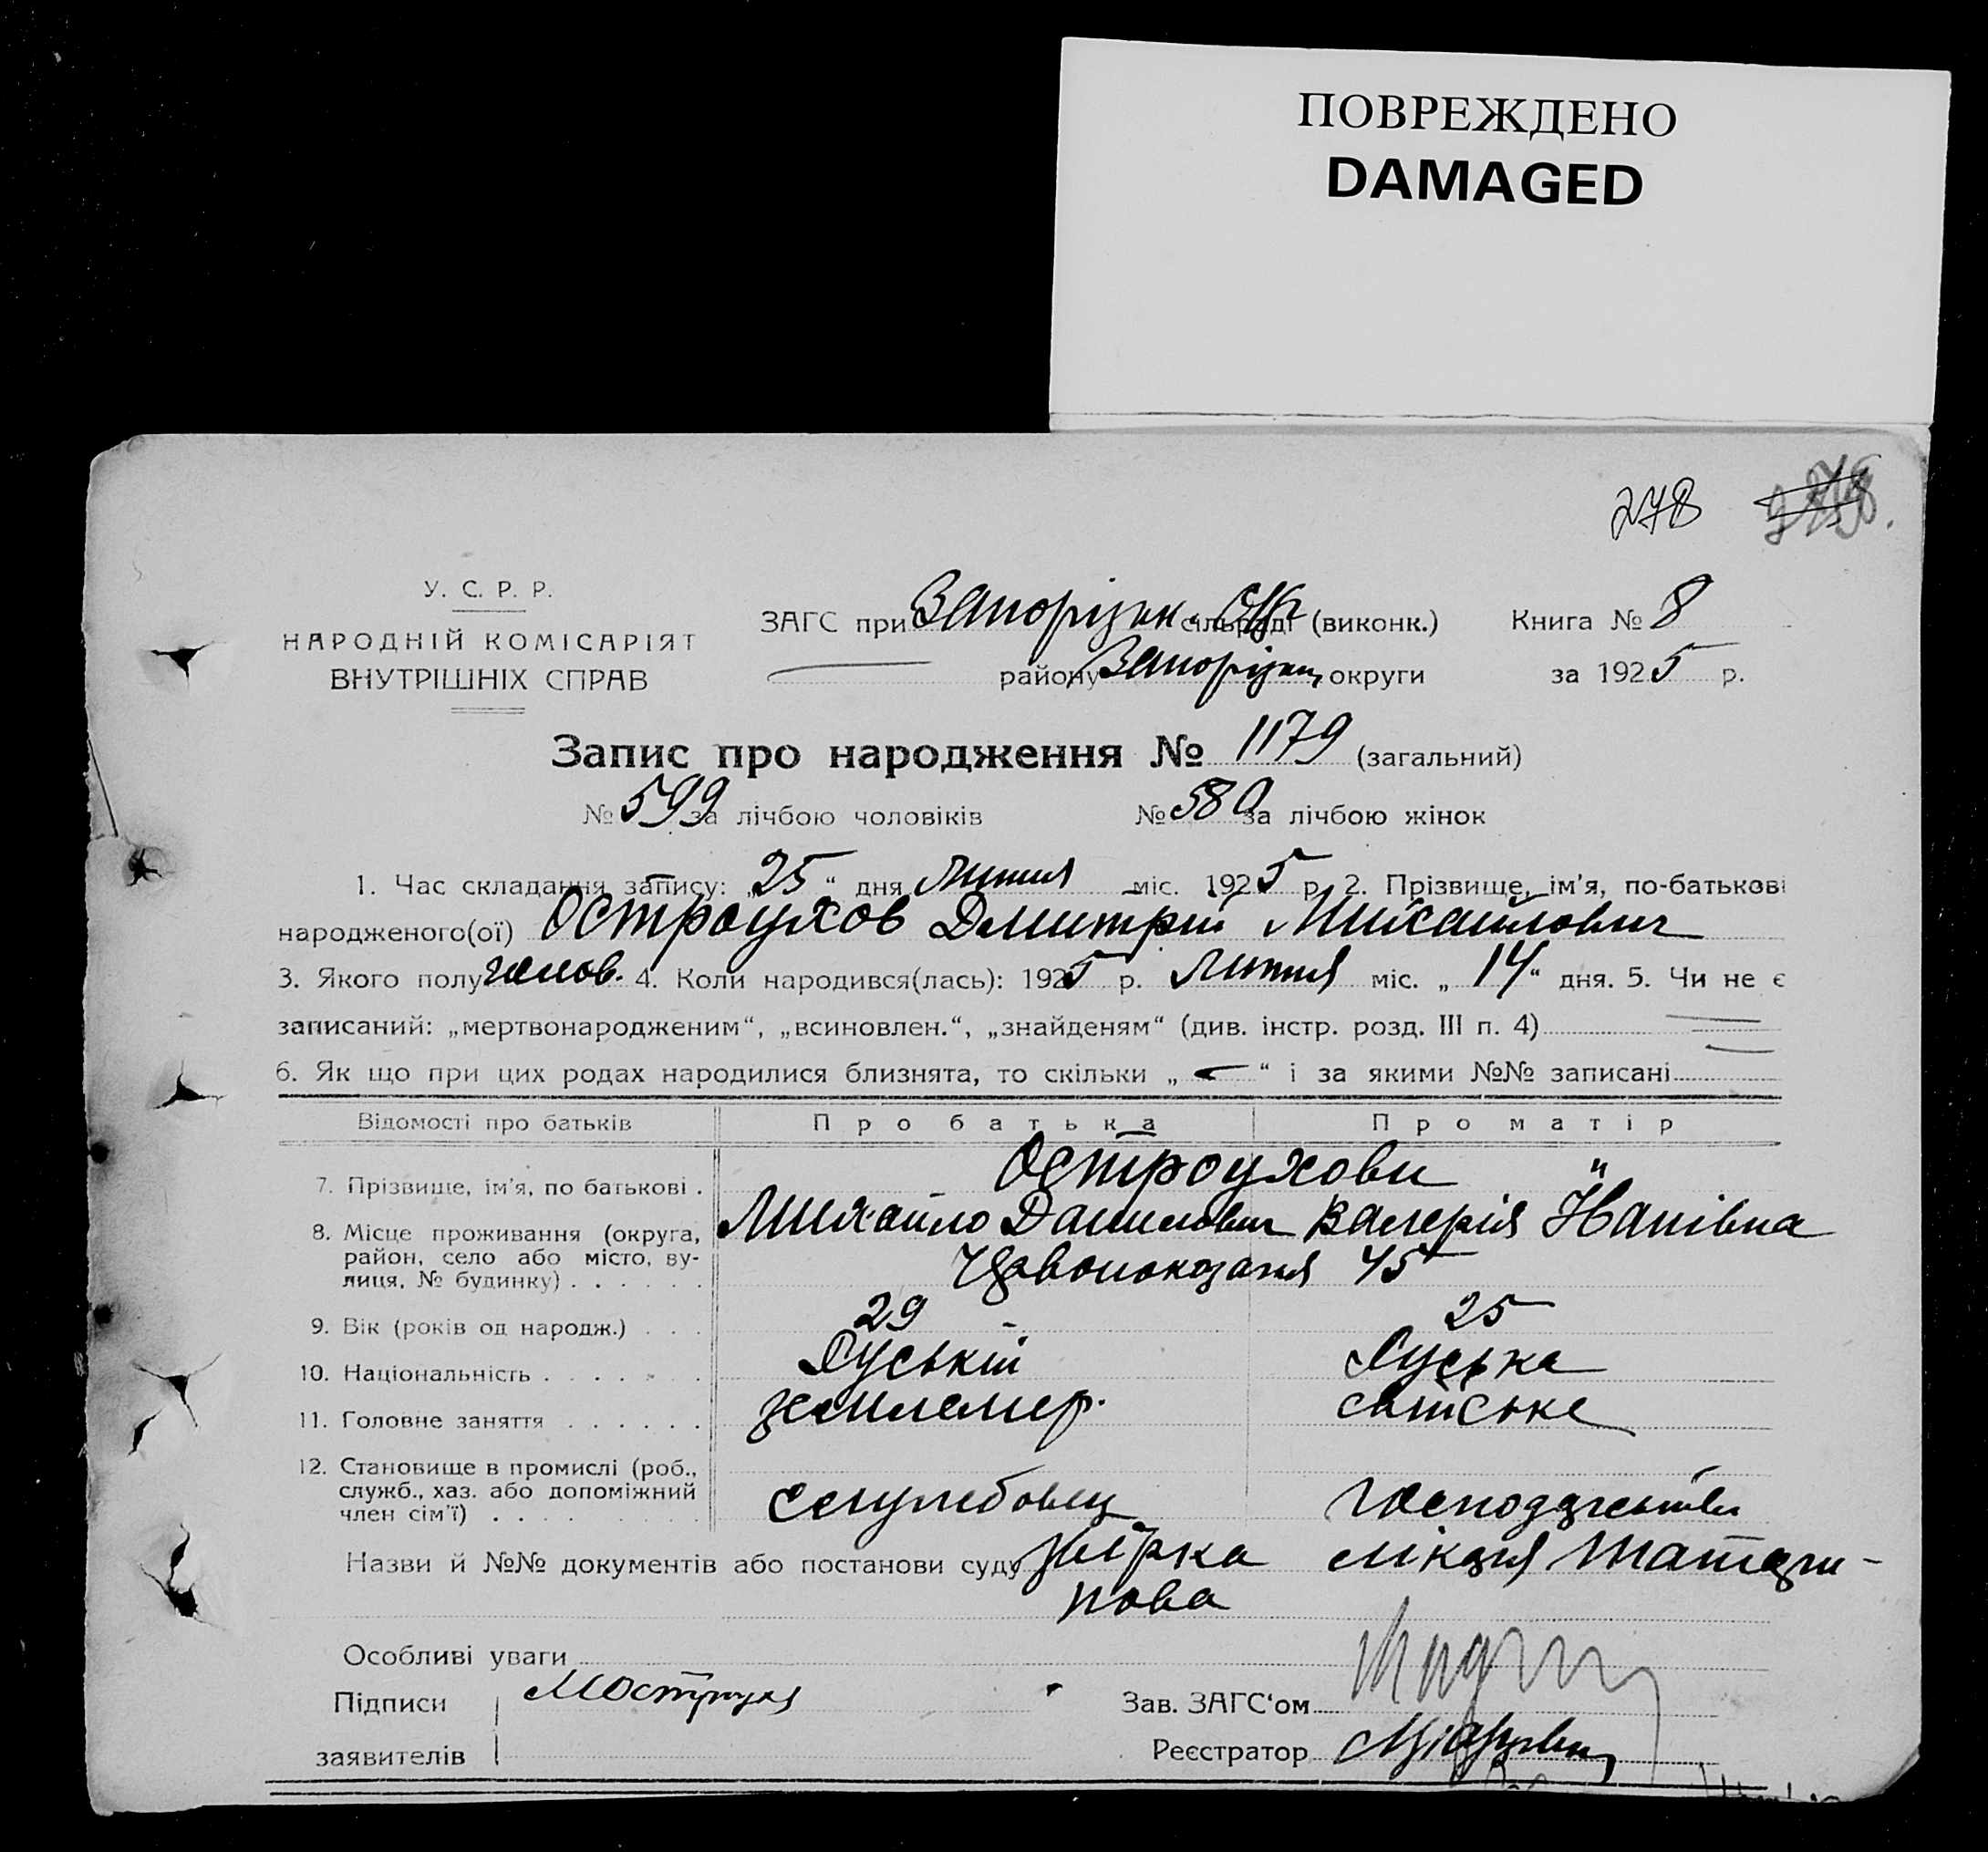 ПОВРЕЖДЕНО
DAMAGED
278
У. С. Р. Р.
НАРОДНІЙ КОМІСАРІЯТ
ВНУТРІШНІХ СПРАВ
ЗАГС при Запорізьк. сільраді (виконк.) Книга № 8
району Запорізьк. округи за 1925 р.
Запис про народження № 1179 (загальний)
№ 599 за лічбою чоловіків № 580 за лічбою жінок
1. Час складання запису: „25“ дня Липня міс. 1925 р. 2. Прізвище, ім'я, по-батькові
народженого(ої) Остроухов Дмитрій Михайлович
3. Якого полу чолов. 4. Коли народився(лась): 1925 р. Липня міс. „14“ дня. 5. Чи не є
записаний: „мертвонародженим“, „всиновлен.“, „знайденям“ (див. інстр. розд. III п. 4)
6. Як що при цих родах народилися близнята, то скільки „—“ і за якими №№ записані
Відомості про батьків Про батька Про матір
7. Прізвище, ім'я, по батькові . Остроухови "
8. Місце проживання (округа, Михайло Данилович Валерія Іванівна
район, село або місто, ву-
лиця, № будинку) . . . . . . 45
9. Вік (років од народж.) . . . 29 25
10. Національність . . . . . . Руській Руська
11. Головне заняття . . . . . . землемер. хатське
12. Становище в промислі (роб.,
служб., хаз. або допоміжний службовец господарство
член сім'ї) . . . . . . . . .
Назви й №№ документів або постанови суду
нова
Особливі уваги
Підписи Зав. ЗАГС'ом
заявителів Реєстратор